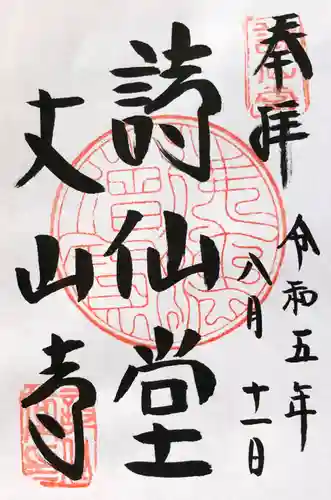 奉拝
令和五年
八月
十一日
詩仙堂
丈山寺